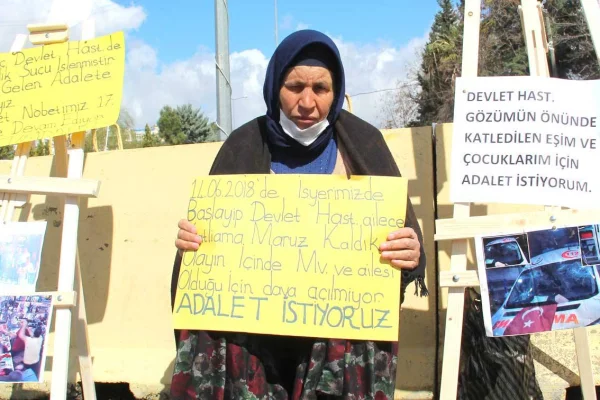 Devlet Hast. de
Suçu İşlenmiştir
Gelen Adalete
Nobetimiz 17.
Devam Ediyor
14.06.2018'de İşyerimizde
Başlayıp Devlet Hast. ailece
Katliama Maruz Kaldık
Olayın İçinde Mv. ve ailesi
Olduğu İçin dava açılmıyor
ADALET İSTİYORUZ
DEVLET HAST.
GÖZÜMÜN ÖNÜNDE
KATLEDİLEN EŞİM VE
ÇOCUKLARIM İÇİN
ADALET İSTİYORUM.